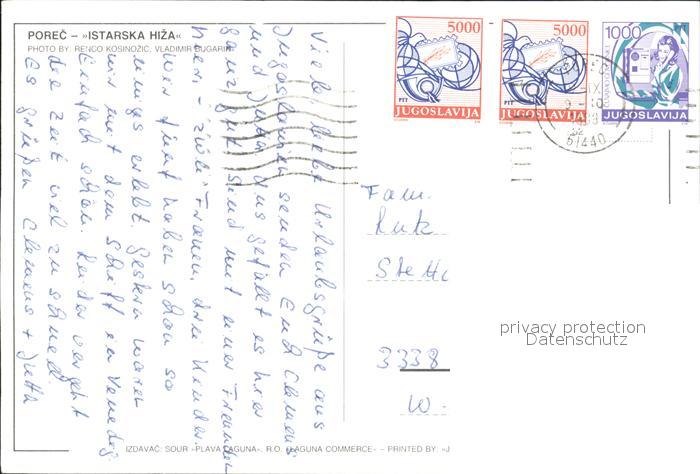 POREČ – »ISTARSKA HIŽA«
PHOTO BY: RENCO KOSINOŽIC, VLADIMIR BUGARIN
5000
PTT
JUGOSLAVIJA
5000
PTT
JUGOSLAVIJA
1000
JUGOSLAVIJA
51440
Viele, liebe Urlaubsgrüße aus
Jugoslawien senden Euch Clemens
und Jutta. Uns gefällt es hier
ganz gut. Sind mit einer Freundin
hier – zwei Frauen, drei Kinder.
Wir haben schon so
einiges erlebt. Gestern waren
wir mit dem Schiff in Venedig.
Einfach schön. Leider vergeht
die Zeit viel zu schnell.
Es grüßen Clemens + Jutta
Fam.
Rutk
Stett
3338
W -
privacy protection
Datenschutz
IZDAVAČ: SOUR »PLAVA LAGUNA«. R.O. »LAGUNA COMMERCE« – PRINTED BY: »J